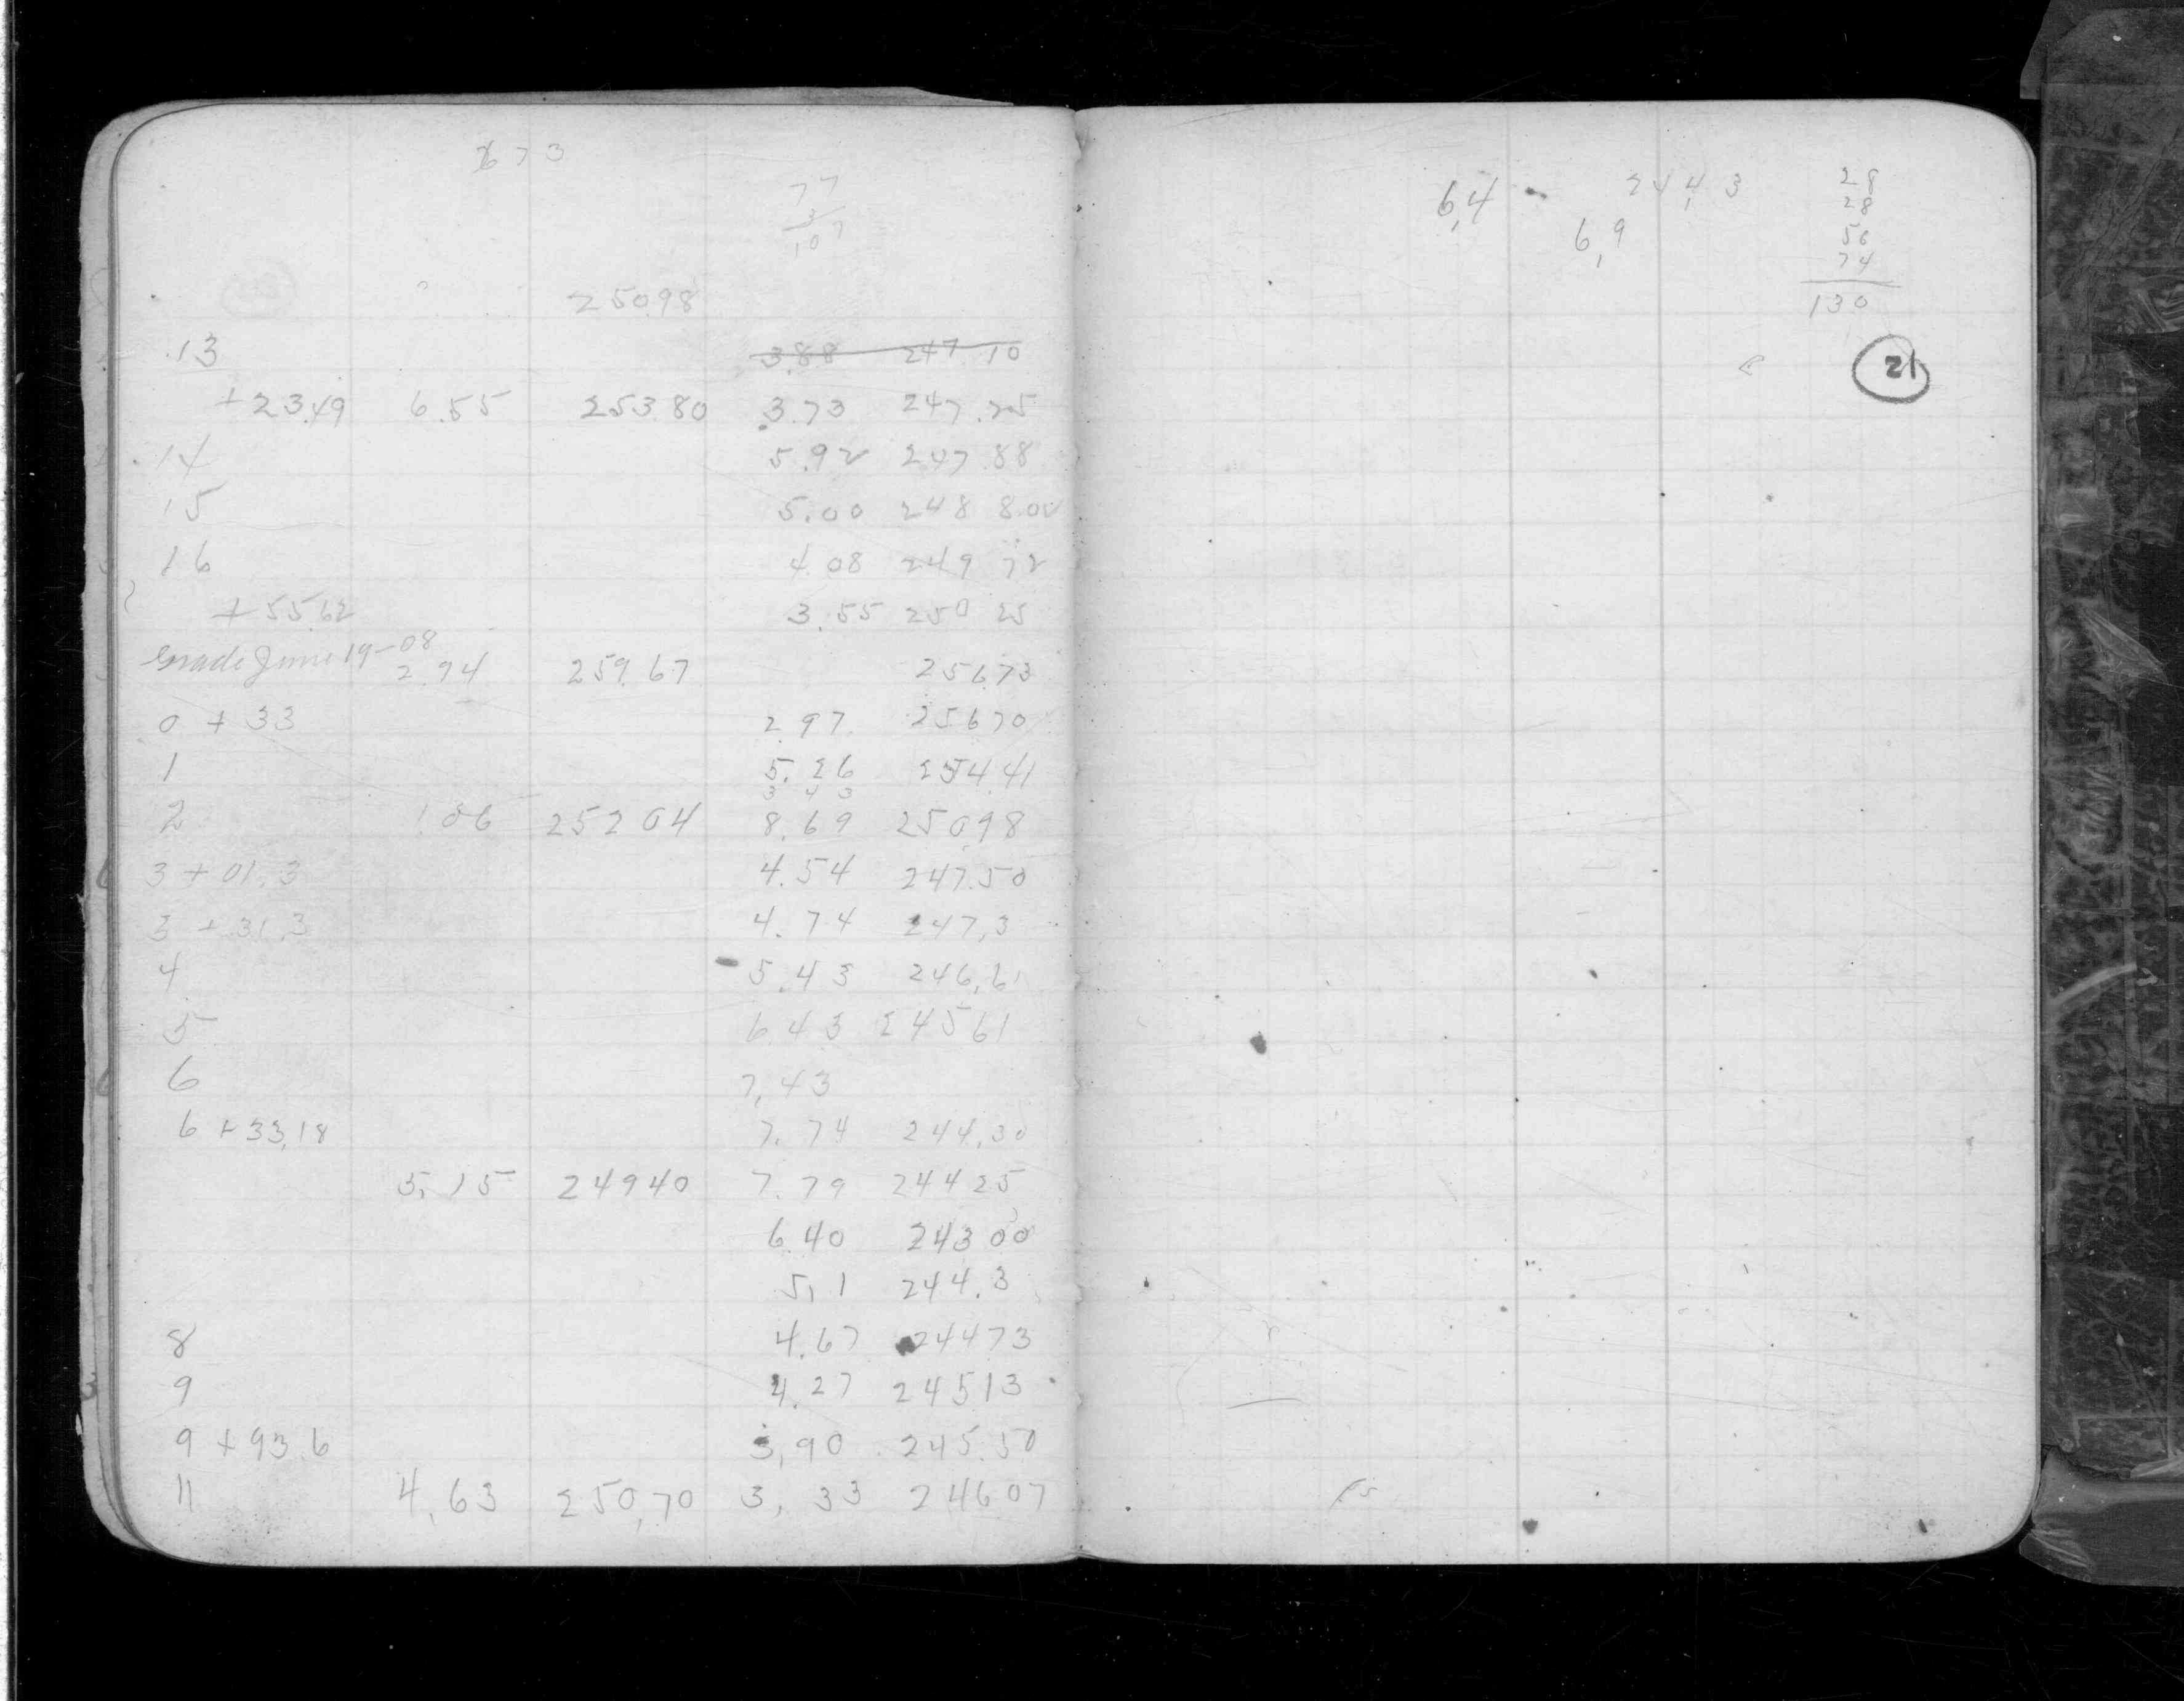 673
77
3
107
250.98
13 3.88 247.10
+23.49 6.55 253.80 3.73 247.25
14 5.92 247.88
15 5.00 248 8.02
16 4.08 249 72
+55.62 3.55 250 25
Grade June 19-08
2.94 259.67 256.73
0 + 33 2.97 256.70
1 5.26 254.41
3 4 3
2 1.06 252 04 8.69 250.98
3 + 01.3 4.54 247.50
3 + 31.3 4.74 247.3
4 5.43 246.61
5 6.43 245 61
6 7.43
6 + 33.18 7.74 244.30
5.15 249 40 7.79 244 25
6.40 243 00
5.1 244.3
8 4.67 244 73
9 4.27 245 13
9 + 93.6 3.90 245.50
11 4.63 250.70 3.33 246 07
6.4 244.3
6.9
28
28
56
74
130
21